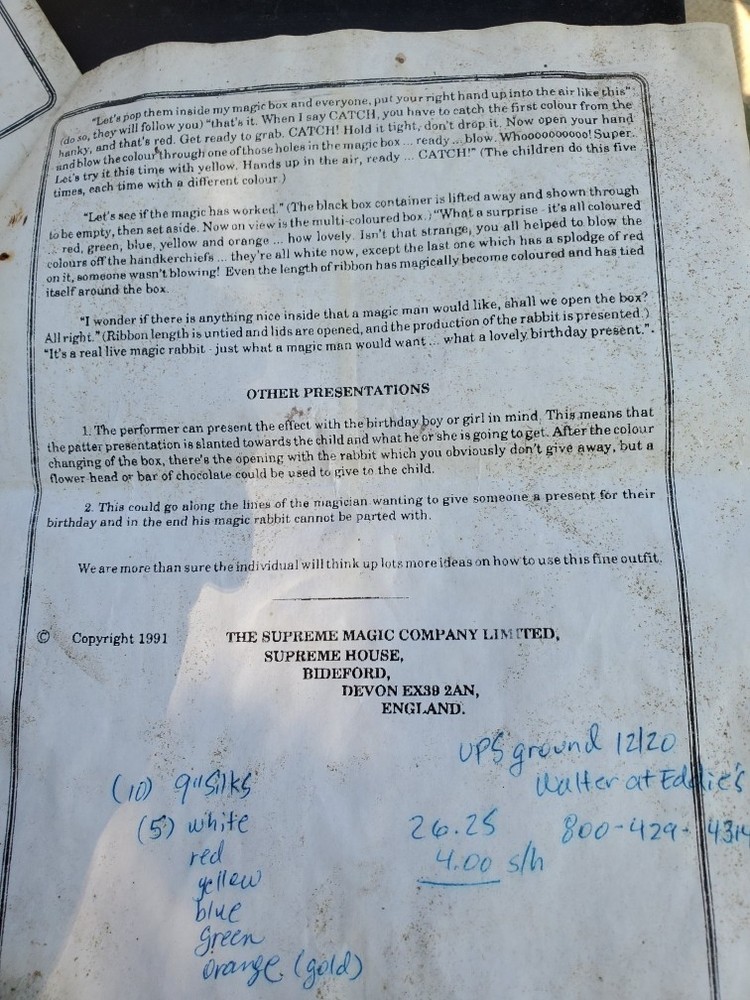 "Let's pop them inside my magic box and everyone, put your right hand up into the air like this"
(do so, they will follow you) "that's it. When I say CATCH, you have to catch the first colour from the
hanky, and that's red. Get ready to grab. CATCH! Hold it tight, don't drop it. Now open your hand
and blow the colour through one of those holes in the magic box ... ready ... blow. Whoooooooooo! Super.
Let's try it this time with yellow. Hands up in the air, ready ... CATCH!" (The children do this five
times, each time with a different colour.)
"Let's see if the magic has worked." (The black box container is lifted away and shown through
to be empty, then set aside. Now on view is the multi-coloured box.) "What a surprise - it's all coloured
... red, green, blue, yellow and orange ... how lovely. Isn't that strange, you all helped to blow the
colours off the handkerchiefs ... they're all white now, except the last one which has a splodge of red
on it, someone wasn't blowing! Even the length of ribbon has magically become coloured and has tied
itself around the box.
"I wonder if there is anything nice inside that a magic man would like, shall we open the box?
All right." (Ribbon length is untied and lids are opened, and the production of the rabbit is presented.)
"It's a real live magic rabbit - just what a magic man would want ... what a lovely birthday present.".
OTHER PRESENTATIONS
1. The performer can present the effect with the birthday boy or girl in mind. This means that
the patter presentation is slanted towards the child and what he or she is going to get. After the colour
changing of the box, there's the opening with the rabbit which you obviously don't give away, but a
flower head or bar of chocolate could be used to give to the child.
2. This could go along the lines of the magician wanting to give someone a present for their
birthday and in the end his magic rabbit cannot be parted with.
We are more than sure the individual will think up lots more ideas on how to use this fine outfit.
© Copyright 1991 THE SUPREME MAGIC COMPANY LIMITED,
SUPREME HOUSE,
BIDEFORD,
DEVON EX39 2AN,
ENGLAND.
UPS ground 12/20
(10) 9" silks Walter at Eddie's
(5) white 26.25 800-429-4314
red 4.00 s/h
yellow
blue
green
orange (gold)